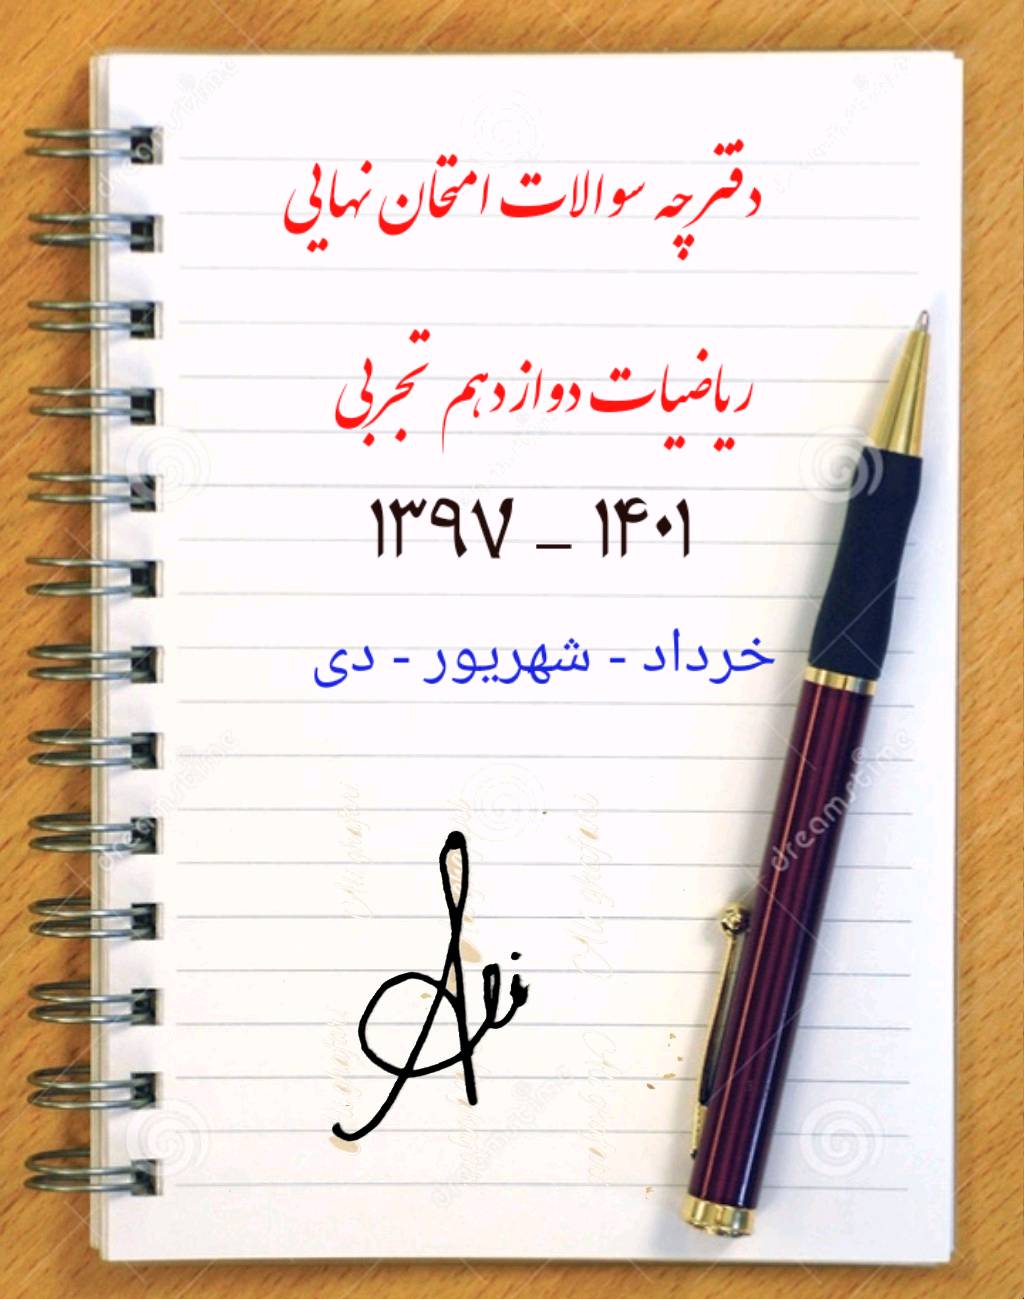 دفترچه سوالات امتحان نهایی
ریاضیات دوازدهم تجربی
۱۳۹۷ - ۱۴۰۱
خرداد - شهریور - دی
Ali
dreamstime